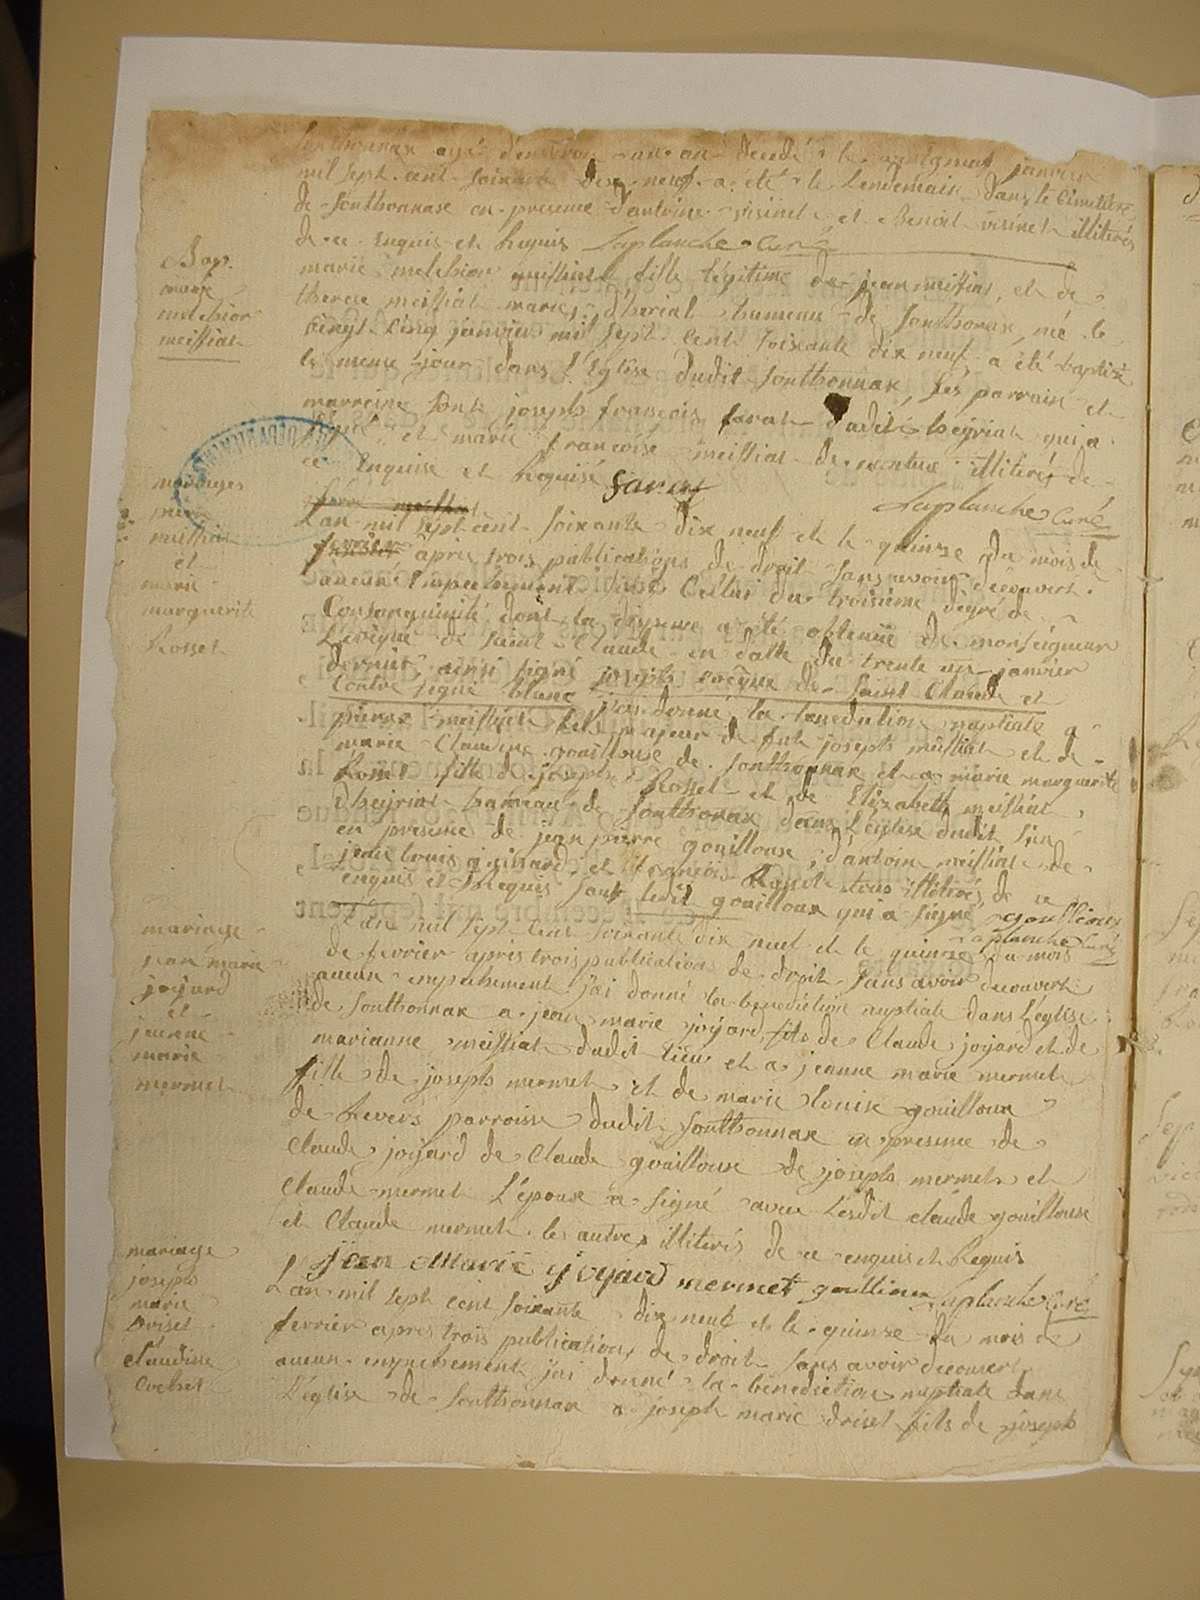 Sonthonnax agé d'environ un an decedé le vingt neuf janvier
mil sept cent soixante dix neuf a été le Lendemain dans le Cimetière
de Sonthonnax en presence d'antoine visinet et Benoit visinet illiterés
de ce Enquis et Requis Laplanche Curé
Bap.
marie
melchior
meissiat
marie melchior meissiat fille légitime de jean meissiat, et de
therese meissiat mariés d'heriat hameau de Sonthonax, né le
vingt cinq janvier mil sept cent soixante dix neuf a été baptisé
le meme jour dans l'Eglise dudit Sonthonnax, ses parrain et
marreine sont joseph françois farat dudit heyriat qui a
signé et marie françoise meissiat de illiterés de
ce Enquise et Requise farat
Laplanche Curé
mariages
pierre
meissiat
et
marie
marguerite
Rosset
L'an mil sept cent soixante dix neuf et le quinze du mois de
fevrier après trois publications de droit sans avoir découvert
aucune Empechement que Cellui du troisième dégré de
Consanguinité dont la dispense a été obtenüe de monseigneur
L'evêque de Saint Claude en datte du trente un janvier
dernier ainsi signé joseph evêque de Saint Claude et
Contre signé blanc j'ai donné la benediction nuptiale a
pierre meissiat fils majeur de fut joseph meissiat et de
marie Claudine gouilloux de Sonthonnax et a marie marguerite
Rosset fille de joseph Rosset et de Elizabeth meissiat
d'heyriat hameau de Sonthonax dans l'église dudit lieu
en presence de jean pierre gouilloux, d'antoine meissiat de
jean louis et françois Rosset tous illiterés de ce
enquis et Requis sauf ledit gouilloux qui a signé goullioux
Laplanche Curé
mariage
jean marie
joyard
et
jeanne
marie
mermet
L'an mil sept cent soixante dix neuf et le quinze du mois
de fevrier apris trois publications de droit sans avoir decouvert
aucun empechement j'ai donné la benediction nuptiale dans L'église
de Sonthonnax a jean marie joyard fils de Claude joyard et de
marianne meissiat dudit lieu et a jeanne marie mermet
fille de joseph mermet et de marie Louise gouilloux
de Revers parroisse dudit Sonthonnax en presence de
Claude joyard de Claude gouilloux de joseph mermet et
Claude mermet L'époux a signé avec Lesdit claude gouilloux
et Claude mermet les autres illiterés de ce enquis et Requis
jean Marie joyard mermet goullioux Laplanche Curé
mariage
joseph
marie
driset
et
claudine
L'an mil sept cent soixante dix neuf et le quinze du mois de
fevrier apres trois publications de droit sans avoir decouvert
aucun empechement j'ai donné la bénediction nuptiale dans
L'église de Sonthonnax a joseph marie driset fils de joseph